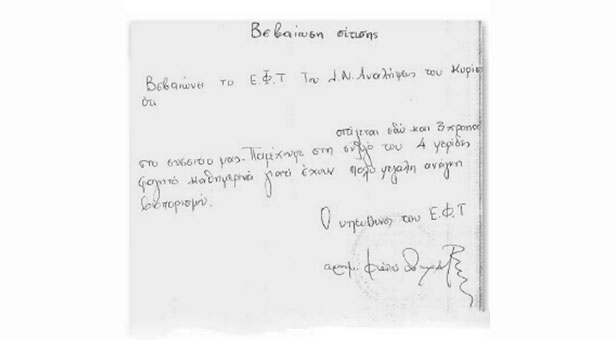 Βεβαίωση σίτισης
Βεβαιώνει το Ε.Φ.Τ του Ι.Ν. Αναλήψεως του Κυρίο
ότι
σιτίζεται εδώ και 3 χρονια
στο συσσιτιο μας. Παρέχουμε στη σύζυγό του 4 μερίδες
φαγητό καθημερινά γιατί έχουν πολύ μεγάλη ανάγκη
βιοπορισμού.
Ο υπεύθυνος του Ε.Φ.Τ
αρχιμ.